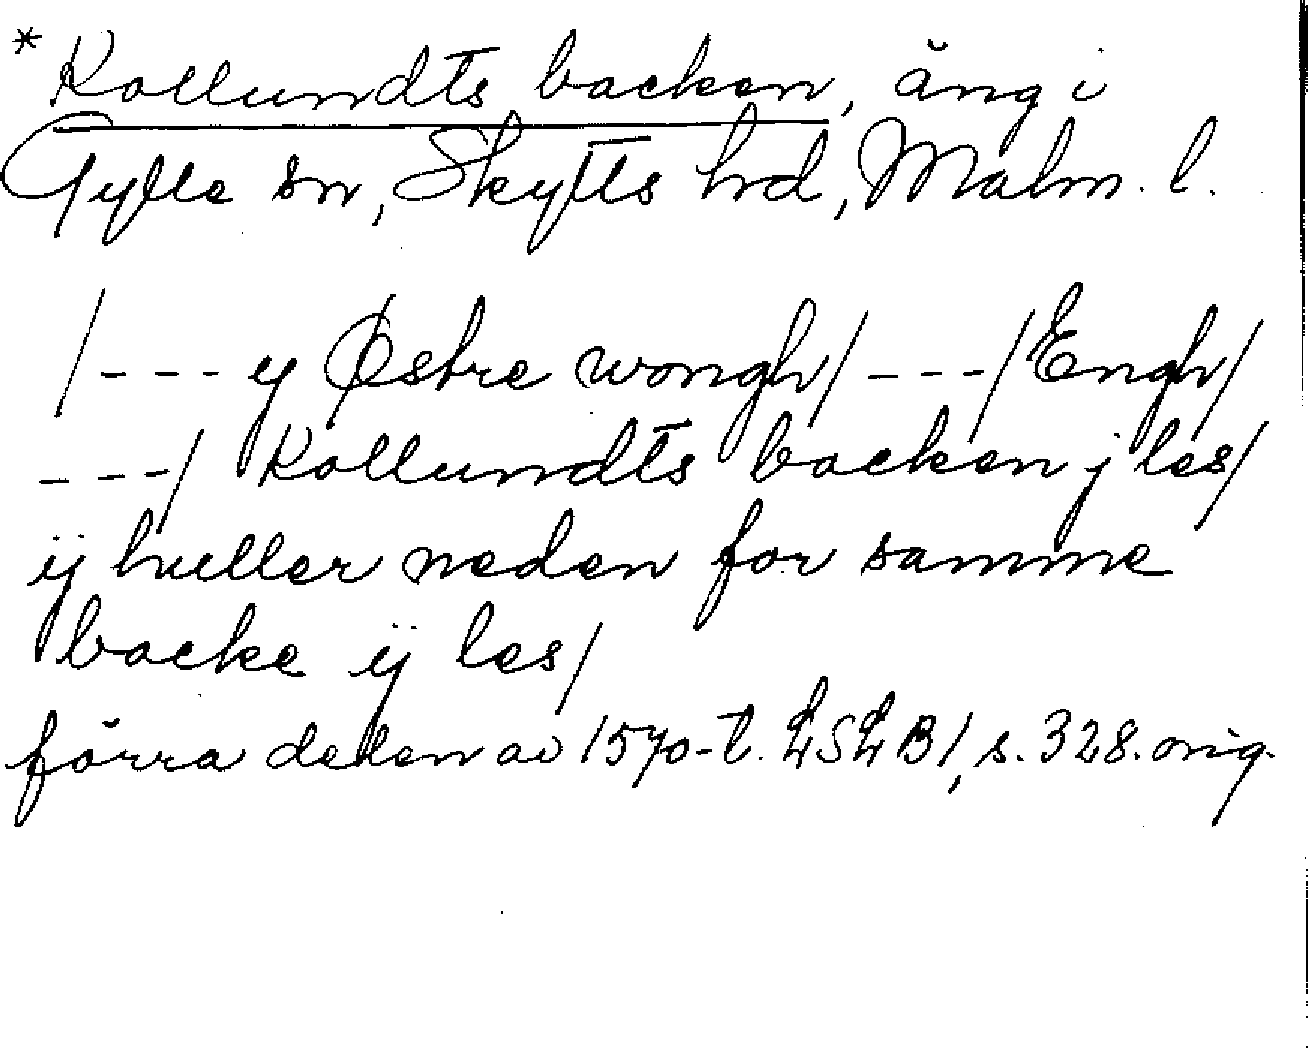 * Kollundts backen, äng i
Gylle sn, Skytts hd, Malm. l.
/--- y Østre wongh/ ---/ Engh/
---/ Kollundts backen j les/
ij huller neden for samme
backe ij les/
förra delen av 1570-t. LSLB1, s. 328. orig.